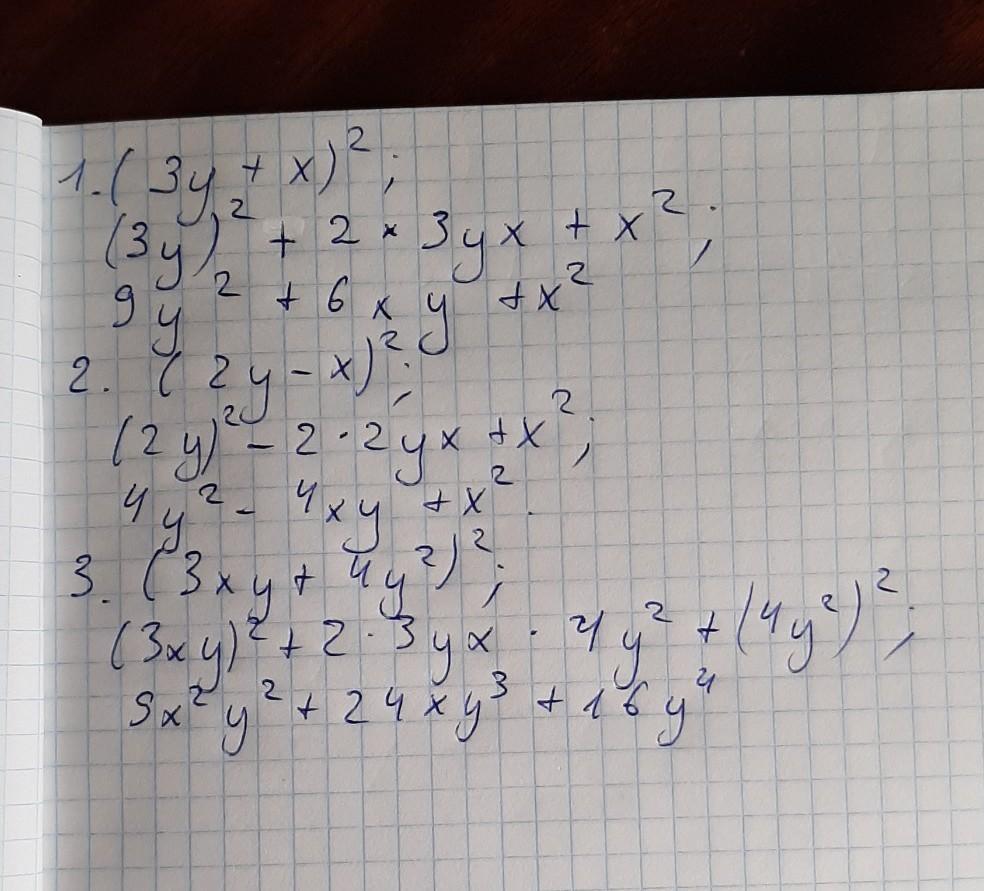 1. (3y + x)²;
(3y)² + 2 × 3yx + x²;
9y² + 6xy + x²
2. (2y - x)²;
(2y)² - 2 · 2yx + x²;
4y² - 4xy + x².
3. (3xy + 4y²)²;
(3xy)² + 2 · 3yx · 4y² + (4y²)²;
9x²y² + 24xy³ + 16y⁴